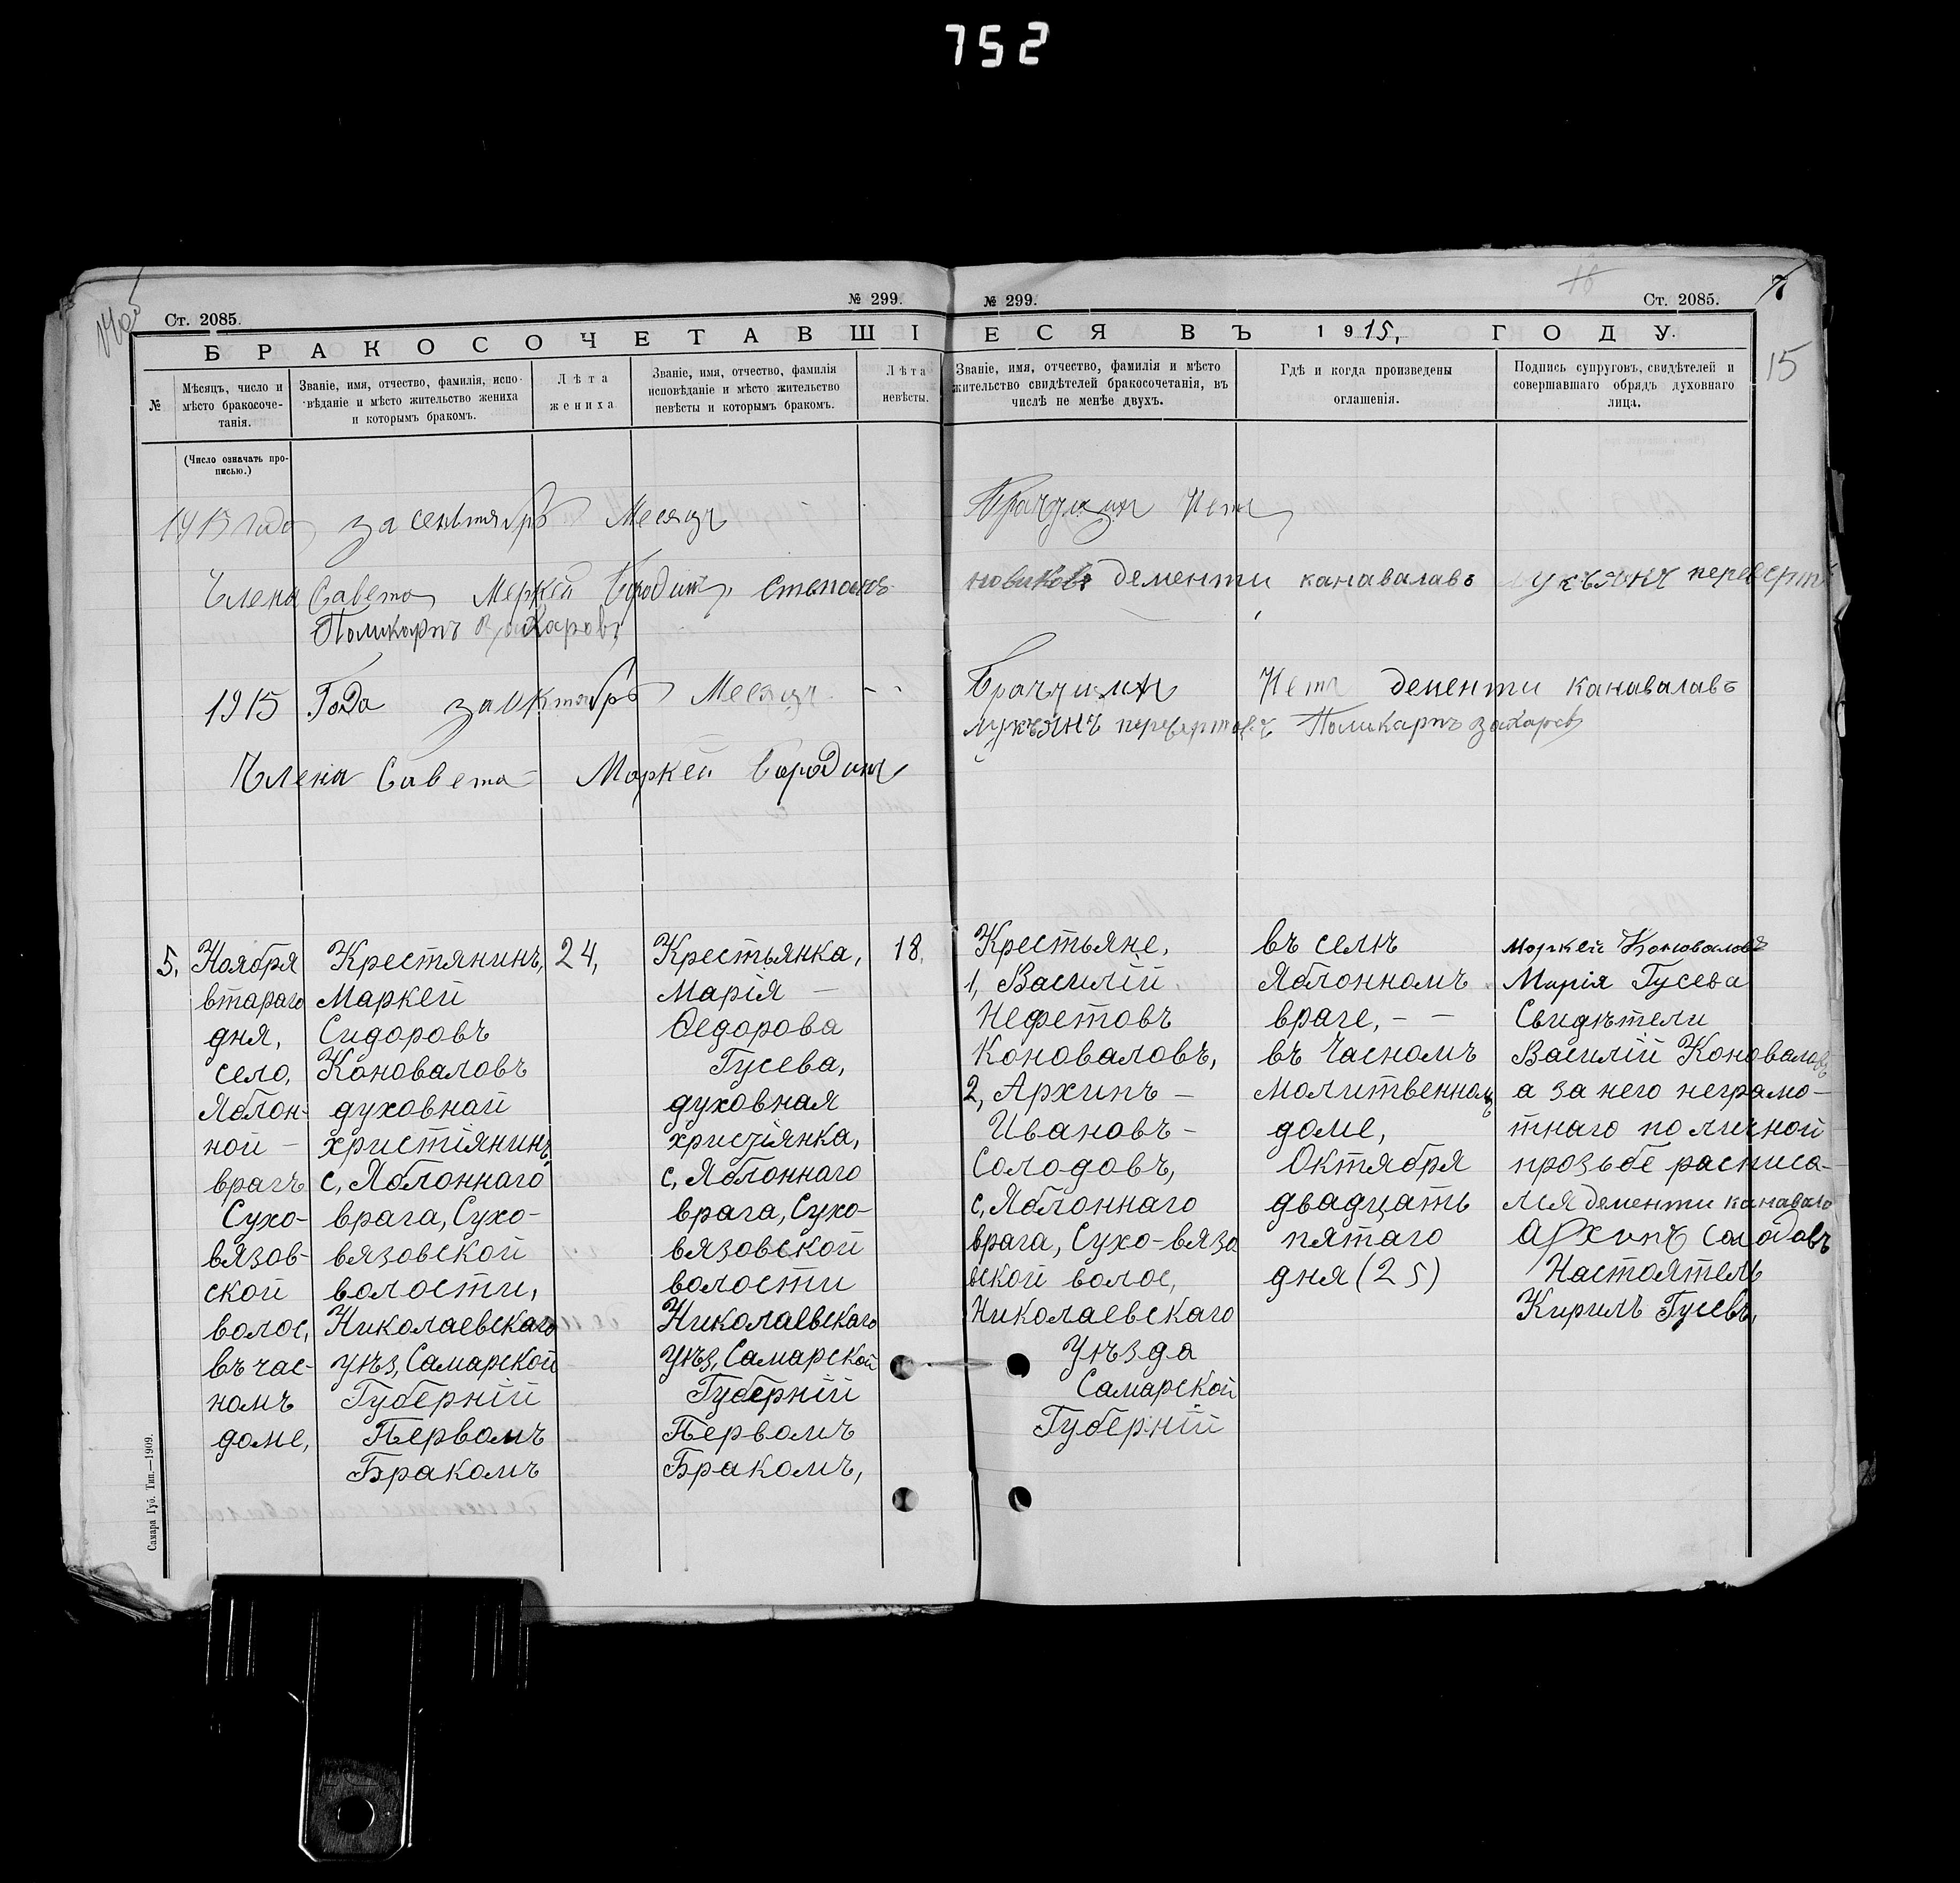 752
Ст. 2085.
№ 299.
№ 299.
Ст. 2085.
7
15
БРАКОСОЧЕТАВШІЕСЯ ВЪ 1915, ГОДУ.
№
Мѣсяцъ, число и
мѣсто бракосоче-
танія.
Званіе, имя, отчество, фамилія, испо-
вѣданіе и мѣсто жительство жениха
и которымъ бракомъ.
Лѣта
жениха
Званіе, имя, отчество, фамилія
исповѣданіе и мѣсто жительство
невѣсты и которымъ бракомъ.
Лѣта
невѣсты.
Званіе, имя, отчество, фамилія и мѣсто
жительство свидѣтелей бракосочетанія, въ
числѣ не менѣе двухъ.
Гдѣ и когда произведены
оглашенія.
Подпись супруговъ, свидѣтелей и
совершавшаго обрядъ духовнаго
лица.
(Число означать про-
писью.)
1915 года за сентябрь Месяцъ
Члена Савета Меркей Бородинъ, степанъ новиковъ дементи канавалавъ
Поликарпъ Захаровъ
1915 Года за Октябрь Месяцъ Нетъ дементи канавалавъ
лукъянъ перевертовъ Поликарпъ захаровъ
Члена Савета Маркей Бородинъ
5,
Ноября
втараго
дня,
село,
Яблон-
ной —
врагъ
Сухо-
вязов-
ской
волос,
въ час-
номъ
доме,
Крестянинъ,
Маркей
Сидоровъ
Коноваловъ
духовнай
христіянинъ,
с, Яблоннаго
врага, Сухо-
вязовской
волости,
Николаевскаго
уѣз, Самарской
Губерній
Первомъ
Бракомъ
24,
Крестьянка,
Марія —
Ѳедорова
Гусева,
духовная
христіянка,
с, Яблоннаго
врага, Сухо-
вязовской
волости
Николаевскаго
уѣз, Самарской
Губерній
Первомъ
Бракомъ,
18,
Крестьяне,
1, Василій
Нефетовъ
Коноваловъ,
2, Архипъ —
Ивановъ —
Солодовъ,
с, Яблоннаго
врага, Сухо-вязо
вской волос,
Николаевскаго
Уѣзда
Самарской
Губерній
въ селѣ
Яблонномъ
враге, — —
въ Часномъ
молитвенномъ
доме,
Октября
двадцать
пятаго
дня (25)
Моркей Коноваловъ
Марія Гусева
Свидѣтели
Василій Коноваловъ
а за него неграмо-
тнаго по личной
прозьбе расписа-
лся дементи канавало
Архипъ Солодовъ
Настоятель
Кирилъ Гусевъ,
Самара Губ. Тип.—1909.